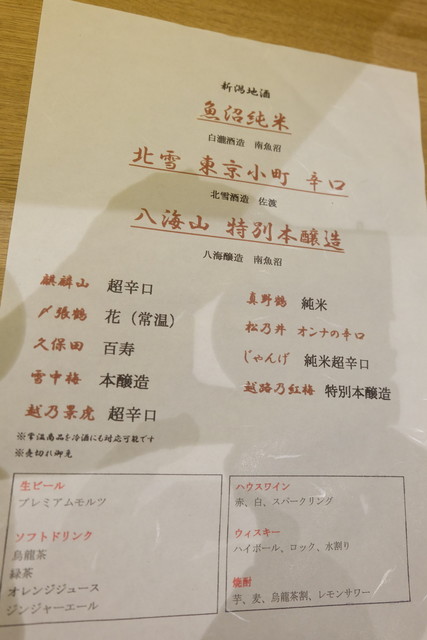 新潟地酒
魚沼純米
白瀧酒造 南魚沼
北雪 東京小町 辛口
北雪酒造 佐渡
八海山 特別本醸造
八海醸造 南魚沼
麒麟山 超辛口
〆張鶴 花（常温）
久保田 百寿
雪中梅 本醸造
越乃景虎 超辛口
真野鶴 純米
松乃井 オンナの辛口
じゃんげ 純米超辛口
越路乃紅梅 特別本醸造
※常温商品を冷酒にも対応可能です
※売切れ御免
生ビール
プレミアムモルツ
ソフトドリンク
烏龍茶
緑茶
オレンジジュース
ジンジャーエール
ハウスワイン
赤、白、スパークリング
ウィスキー
ハイボール、ロック、水割り
焼酎
芋、麦、烏龍茶割、レモンサワー